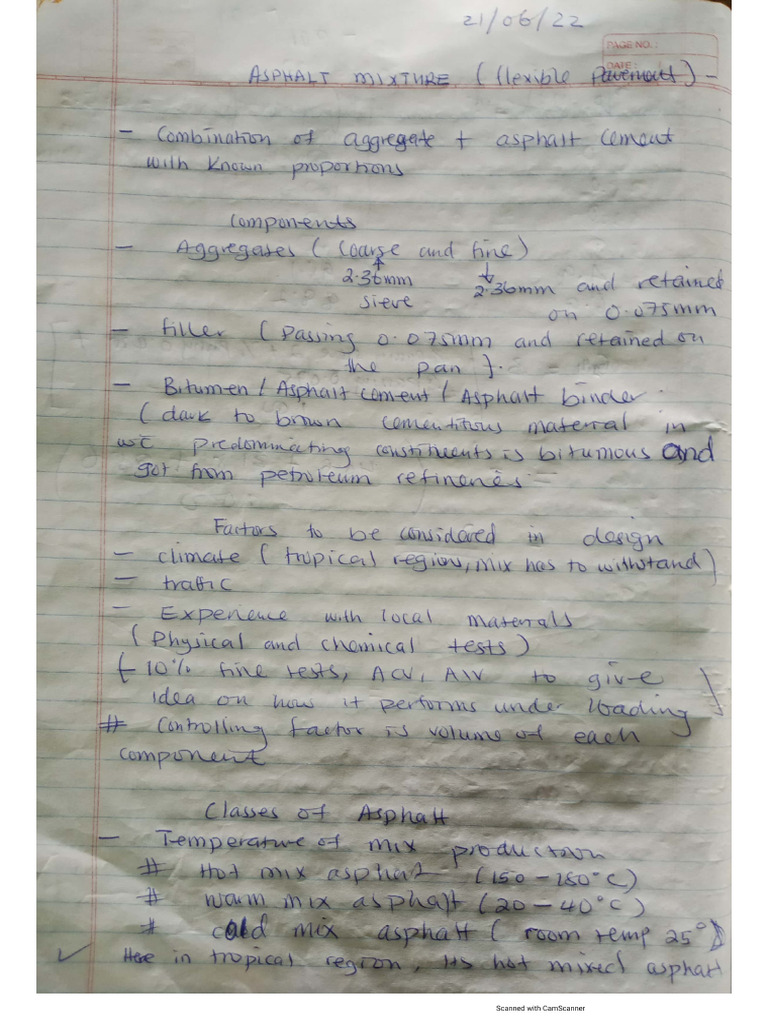 21/06/22
PAGE NO.:
DATE:
ASPHALT MIXTURE (flexible Pavement) -
- Combination of aggregate + asphalt cement
with known proportions
Components
- Aggregates (Coarse and fine)
2.36mm 2.36mm and retained
sieve on 0.075mm
- filler (Passing 0.075mm and retained on
the pan }.
- Bitumen / Asphalt cement / Asphalt binder.
(dark to brown cementitous material in
wc predominating constituents is bitumous and
got from petroleum refineries
Factors to be considered in design
- climate (tropical region, mix has to withstand)
- traffic
- Experience with local materials
(Physical and chemical tests)
(10% fine tests, ACV, AIV to give
idea on how it performs under loading)
# Controlling factor is volume of each
component
Classes of Asphalt
- Temperature of mix production
# Hot mix asphalt (150-180°C)
# warm mix asphalt (20-40°C)
# cold mix asphalt (room temp 25°)
✓ Here in tropical region, its hot mixed asphalt
Scanned with CamScanner